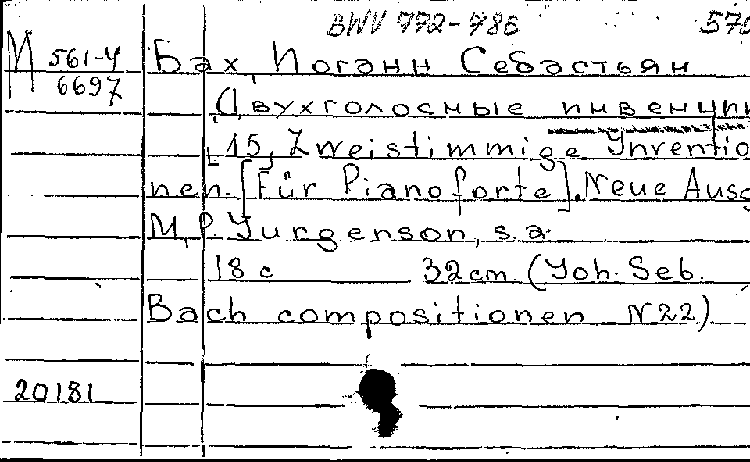 BWV 772-786 570
М 561-4 Бах, Иоганн Себастьян
6697
Двухголосные инвенции
[15, Zweistimmige Inventio
nen. [Für Pianoforte]. Neue Ausg
M, P. Jurgenson, s.a.
18 с 32 cm. (Joh. Seb.
Bach compositionen N22)
20181